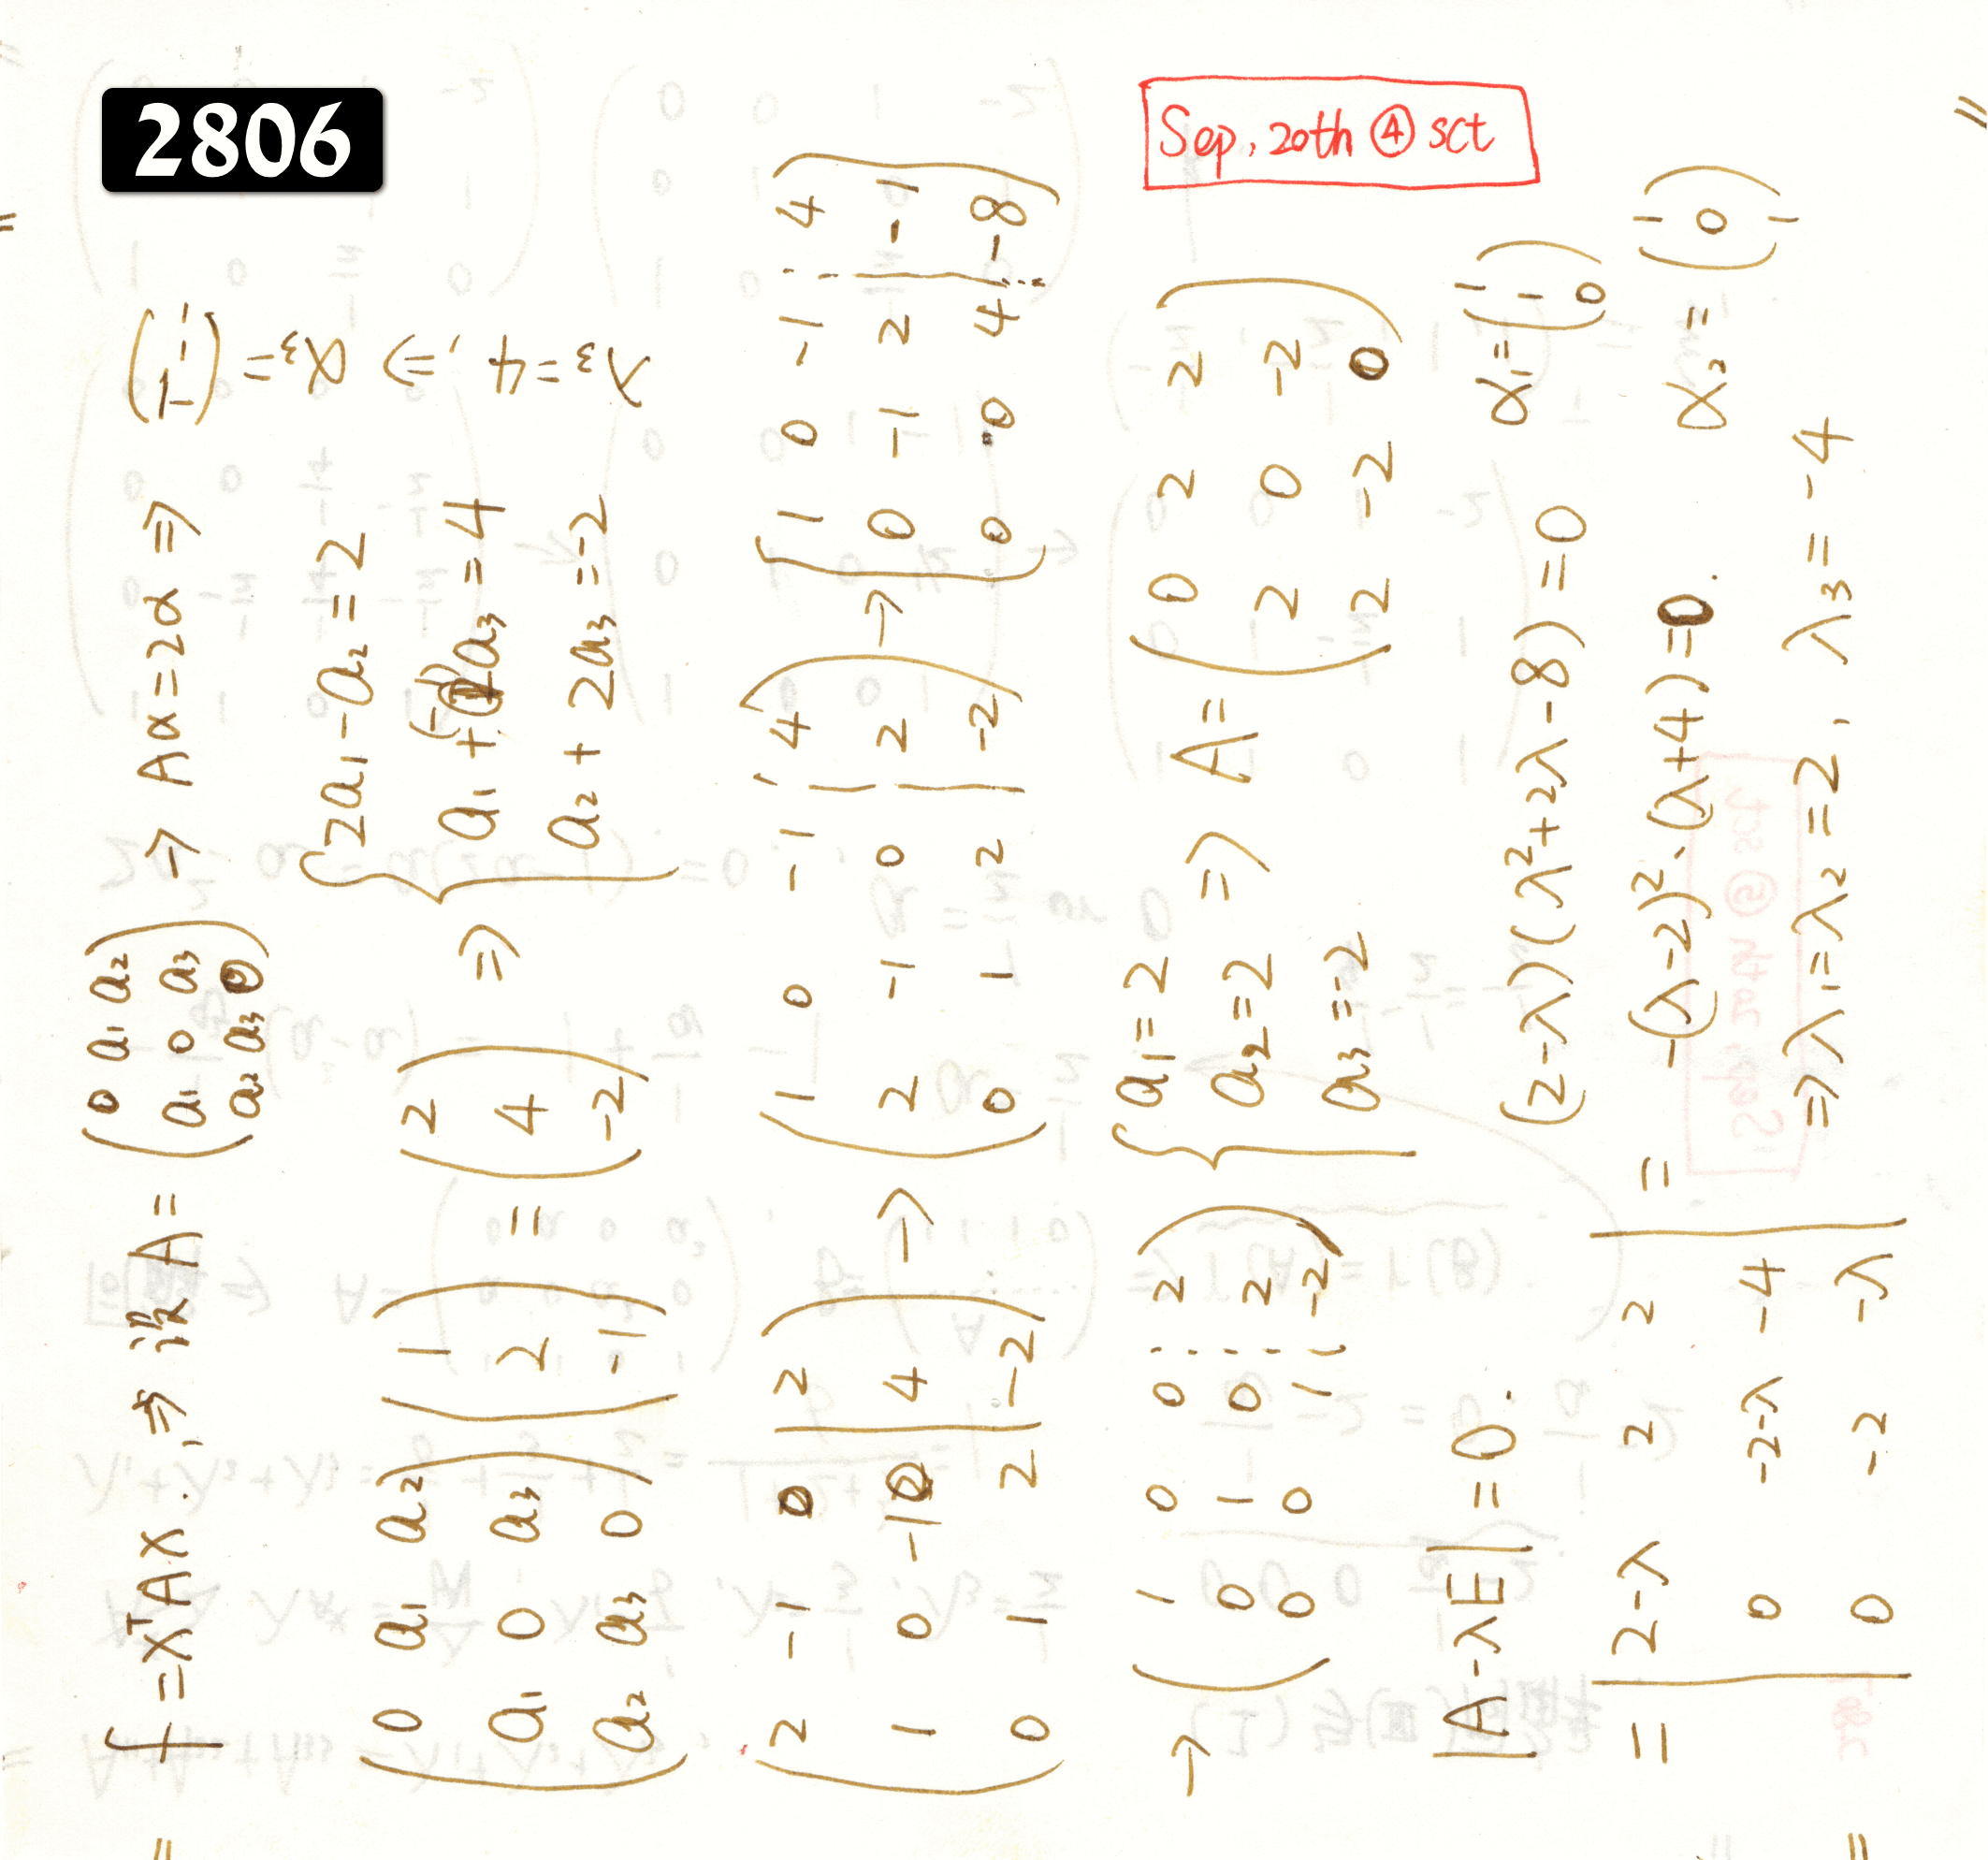 2806
Sep, 20th ④ sct
f = xᵀAx. ⇒ 设 A = (0 a₁ a₂ / a₁ 0 a₃ / a₂ a₃ 0) → Aα = 2α ⇒
(0 a₁ a₂ / a₁ 0 a₃ / a₂ a₃ 0) (1 / 2 / -1) = (2 / 4 / -2) ⇒ { 2a₁ - a₂ = 2
a₁ + (-1)a₃ = 4
a₂ + 2a₃ = -2
(2 -1 0 | 2 / 1 0 -1 | 4 / 0 1 2 | -2) → (1 0 -1 | 4 / 2 -1 0 | 2 / 0 1 2 | -2) → (1 0 -1 | 4 / 0 -1 2 | -1 / 0 0 4 | -8)
→ (1 0 0 | 2 / 0 1 0 | 2 / 0 0 1 | -2) { a₁ = 2
a₂ = 2
a₃ = -2
⇒ A = (0 2 2 / 2 0 -2 / 2 -2 0)
|A - λE| = 0. (2-λ)(λ²+2λ-8) = 0 α₁ = (1 / 1 / 0)
= |2-λ 2 2 / 0 -2-λ -4 / 0 -2 -λ| = -(λ-2)²·(λ+4) = 0. α₂ = (1 / 0 / 1)
⇒ λ₁ = λ₂ = 2, λ₃ = -4
λ₃ = 4, ⇒ α₃ =